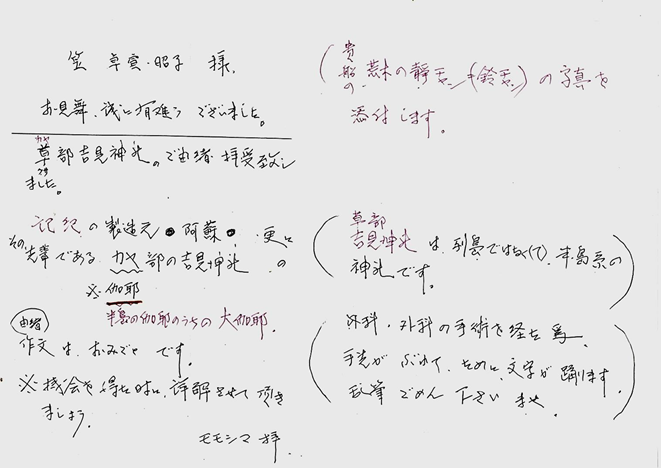 笠 卓宣・昭子 様.
お見舞、誠に有難う ございました。
草部吉見神社の ご由緒 拝受致し
カヤ
クサ
ました。
記紀 の 製造元 ● 阿蘇 ●. 更に
その先輩である カヤ部の吉見神社 の
※伽耶
半島の伽耶のうちの 大伽耶.
由緒
作文 は、おみごと です。
※ 機会を得た時に、詳解させて頂き
ましょう。
モモシマ 拝.
(貴船の 荒木の静玉 (鈴玉) の 写真を
添付 します。
(草部
吉見神社 は、列島ではなく(て)、半島系の
神社 です。)
(外科・外科の手術を経た為、
手先が ぶれて、ために、文字が 踊ります
乱筆 ごめん 下さい ませ.)